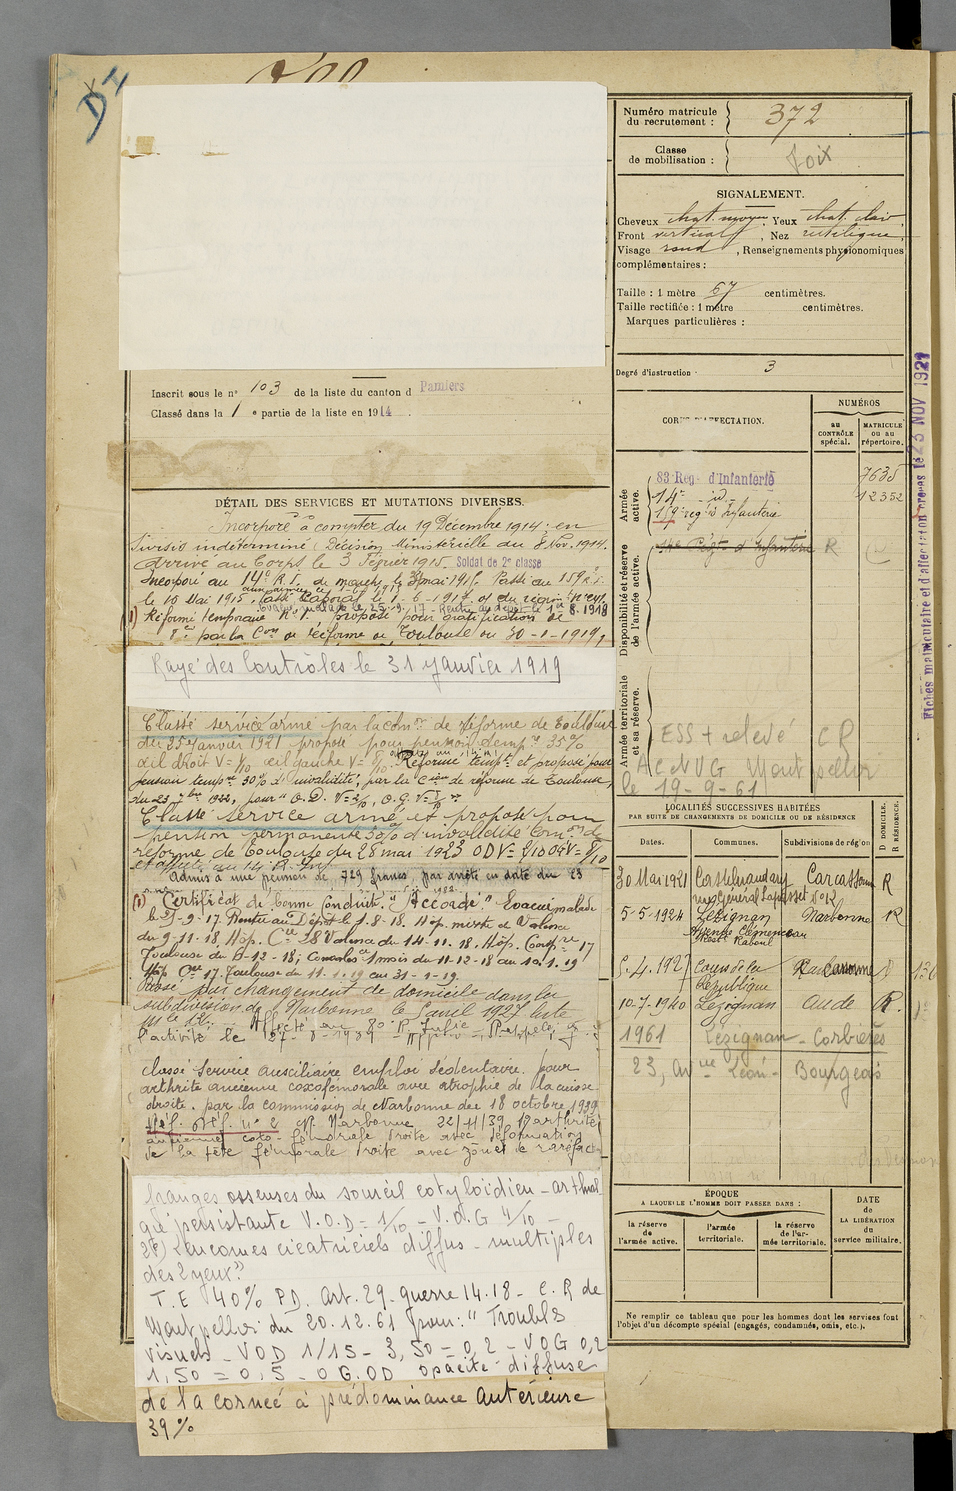 Numéro matricule
du recrutement : 372
Classe
de mobilisation : Foix
SIGNALEMENT.
Cheveux chat. moyen, Yeux chat. clair
Front vertical, Nez rectiligne,
Visage rond, Renseignements physionomiques
complémentaires :
Taille : 1 mètre 67 centimètres.
Taille rectifiée : 1 mètre centimètres.
Marques particulières :
Degré d'instruction 3
Inscrit sous le n° 103 de la liste du canton d Pamiers
Classé dans la 1 e partie de la liste en 1914.
DÉTAIL DES SERVICES ET MUTATIONS DIVERSES.
Incorporé à compter du 19 Décembre 1914 : en
Sursis indéterminé (Décision Ministérielle du 8 Nov. 1914.
Arrivé au Corps le 3 Février 1915. Soldat de 2e classe
Incorporé au 14e R.I. de marche le mai 1915. Passé au 159 R.I.
le 10 Mai 1915. Passé Caporal le 1-6-1917.
Evacué malade le 25-9-17 - Rentré au dépôt le 1er 8.1918
1) Réformé temporaire N° 1. proposé pour gratification de
8e par la Con de réforme de Toulouse du 30-1-1919,
Rayé des Contrôles le 31 Janvier 1919
Classé service armé par la com. de réforme de Toulouse
du 25 Janvier 1921 proposé pour pension temp. 35%
œil droit V= /10 œil gauche V= /10 Réformé tempre et proposé pour
pension tempre 30% d'invalidité, par la Con de réforme de Toulouse,
du 23 bre 1922, pour "O.D. V=2/10, O.G. V=
Classé service armé et proposé pour
pension permanente 30% d'invalidité Comon de
réforme de Toulouse du 28 mai 1923 OD V= /10 OG V= 8/10
et affecté au 14 R. Inf
Admis à une pension de 729 francs, par arrêté en date du 23
(1) Certificat de bonne Conduite "Accordé" Evacué malade
le 25-9-17 Rentré au Dépôt le 1-8-18. Hôp. mixte de Valence
du 9-11-18, Hôp. Cre 28 Valence du 14-11-18. Hôp. Compre 17
Toulouse du 6-12-18; Convalesce 1 mois du 11-12-18 au 10.1.19
Hôp Cre 17. Toulouse du 11-1-19 au 31-1-19.
Passé par changement de domicile dans la
subdivision de Narbonne le 5 avril 1927
l'activité le 27-8-1939
Classé Service auxiliaire emploi sédentaire. pour
arthrite ancienne coxofémorale avec atrophie de la cuisse
droite. par la commission de Narbonne du 18 octobre 1939
Réf. déf. n° 2 Narbonne 22/11/39 1) arthrite
ancienne coxo-fémorale droite avec déformation
de la tête fémorale droite avec zones de raréfac-
franges osseuses du sourcil cotyloïdien - arthral
gie persistante V.O.D = 1/10 - V.O.G 4/10 -
2°) Leucomes cicatriciels diffus - multiples
des 2 yeux"
T.E 40% P.D. art. 29. guerre 14.18 - C.R de
Montpellier du 20.12.61 pour: "Troubles
visuels - VOD 1/15 - 3,50 = 0,2 - VOG 0,2
1,50 = 0,5 - OG.OD opacité diffuse
de la cornée à prédominance antérieure
39%
CORPS D'AFFECTATION.
NUMÉROS
au
CONTRÔLE
spécial.
MATRICULE
ou au
répertoire.
Armée
active.
83 Reg. d'Infanterie 7635
14e - id - 12352
159 reg d'Infanterie
Disponibilité et réserve
de l'armée active.
14e Régt d'Infanterie R
Armée territoriale
et sa réserve.
ESS + relevé CR
ACNVG Montpellier
le 19-9-61
Fiches matriculaire et d'affectation créées le 23 NOV 1921
LOCALITÉS SUCCESSIVES HABITÉES
PAR SUITE DE CHANGEMENTS DE DOMICILE OU DE RÉSIDENCE
D. DOMICILE.
R. RÉSIDENCE.
Dates. Communes. Subdivisions de région
30 Mai 1921 Castelnaudary Carcassonne R
5-5-1924 Lézignan Narbonne R
Avenue Clémenceau
5.4.1927 Cours de la
République Narbonne D
10-7-1940 Lézignan Aude R.
1961 Lézignan - Corbières
23, avue Léon - Bourgeois
ÉPOQUE
A LAQUELLE L'HOMME DOIT PASSER DANS :
la réserve
de
l'armée active.
l'armée
territoriale.
la réserve
de l'ar-
mée territoriale.
DATE
de
LA LIBÉRATION
du
service militaire.
Ne remplir ce tableau que pour les hommes dont les services font
l'objet d'un décompte spécial (engagés, condamnés, omis, etc.).